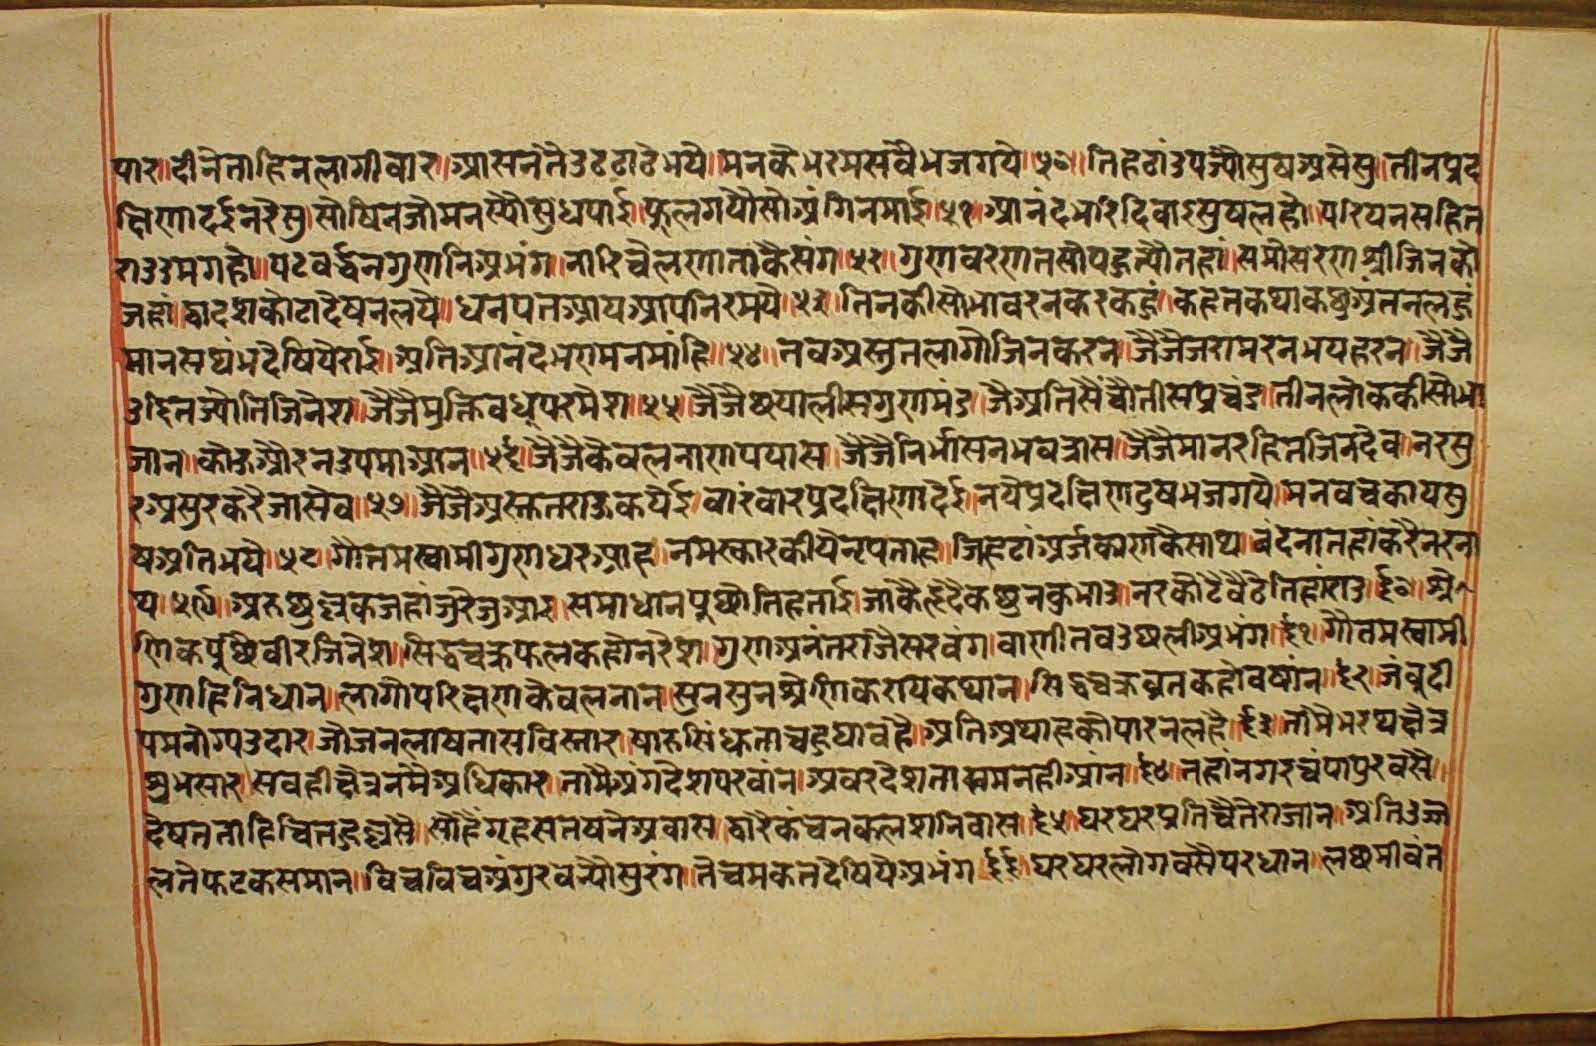 पार॥दीनेताहिनलागीवार॥आसनतेउठठाढेभये॥मनकेभरमसर्वेभजगये॥५०॥तिहठांउपज्यौसुषअसेसु॥तीनप्रद
क्षिणादईनरेसु॥सोषिनजोमनस्यौसुधपाई॥फूलगयौसोअंगिनमाई॥५१॥आनंदभरिदिवाइसुषलहौ॥परियनसहित
राउउमगहौ॥पटवर्द्धनगुणनिअभंग॥नारिचेलणाताकेसंग॥५२॥गुणवरणतसोपहुत्यौतहां॥समोसरणश्रीजिनकौ
जहां॥द्वादशकोठादेषनलये॥धनपतआयआपनिरमये॥५३॥तिनकीसोभावरनकरकहुं॥कहतकथाकछुअंतनलहुं॥
मानसथंभदेषियेराई॥अतिआनंदभरामनमांहि॥५४॥तवअस्तुतलागौजिनकरन॥जैजैजरामरनभयहरन॥जैजै
उदितज्योतिजिनेश॥जैजैमुक्तिवधूपरमेश॥५५॥जैजैछयालीसगुणमंड॥जैअतिसैचौतीसप्रचंड॥तीनलोककीसोभा
जान॥कोऊऔरनउपमाआन॥५६॥जैजैकेवलनाणपयास॥जैजैनिर्भासनभवत्रास॥जैजैमानरहितजिनदेव॥नरसु
रअसुरकरैजासेव॥५७॥जैजैअस्तुतराऊकर्येई॥वारंवारप्रदक्षिणादेई॥नयेप्रदक्षिणदुषभजगये॥मनवचकायसु
षअतिभये॥५८॥गौतमस्वामीगुणधरआह॥नमस्कारकीयेनृपताह॥जिहठांअर्जकाणकेसाथ॥वंदनातहांकरैनरना
थ॥५९॥अरुछुल्लकजहांजुरेजुआइ॥समाधानपुछौतिहर्ताई॥जाकेहृदैकछुनकुभाउ॥नरकोठेबैठेतिहांराउ॥६०॥श्रे
णिकपुछैवीरजिनेश॥सिद्धचक्रफलकहौनरेश॥गुणअनंतराजैसरवंग॥वाणीतवउछलीअभंग॥६१॥गौतमस्वामी
गुणहिनिधान॥लागौपरिक्षणकेवलनान॥सुनसुनश्रेणिकरायकथान॥सिद्धचक्रव्रतकहोवषांन॥६२॥जंबुदी
पमनोग्यउदार॥जोजनलाषतासविस्तार॥षारुसिंधुताचहुधावहै॥अतिअथाहकोपारनलहै॥६३॥तामैभरथक्षेत्र
शुभसार॥सवहीक्षेत्रनमैअधिकार॥तामैअंगदेशपरवांन॥अवरदेशतासमनहीआंन॥६४॥तहांनगरचंपापुरवसै॥
देषतताहिचितहुल्लसै॥सोहैगृहसतषनेअवास॥द्वारैकंचनकलशनिवास॥६५॥घरघरप्रतिचैतेराजान॥अतिउज्ज
लतेफटकसमान॥विचविचअंगुरवन्यौसुरंग॥तेचमकतदेषियेअभंग॥६६॥घरघरलोगवसैपरधान॥लछमीवंत